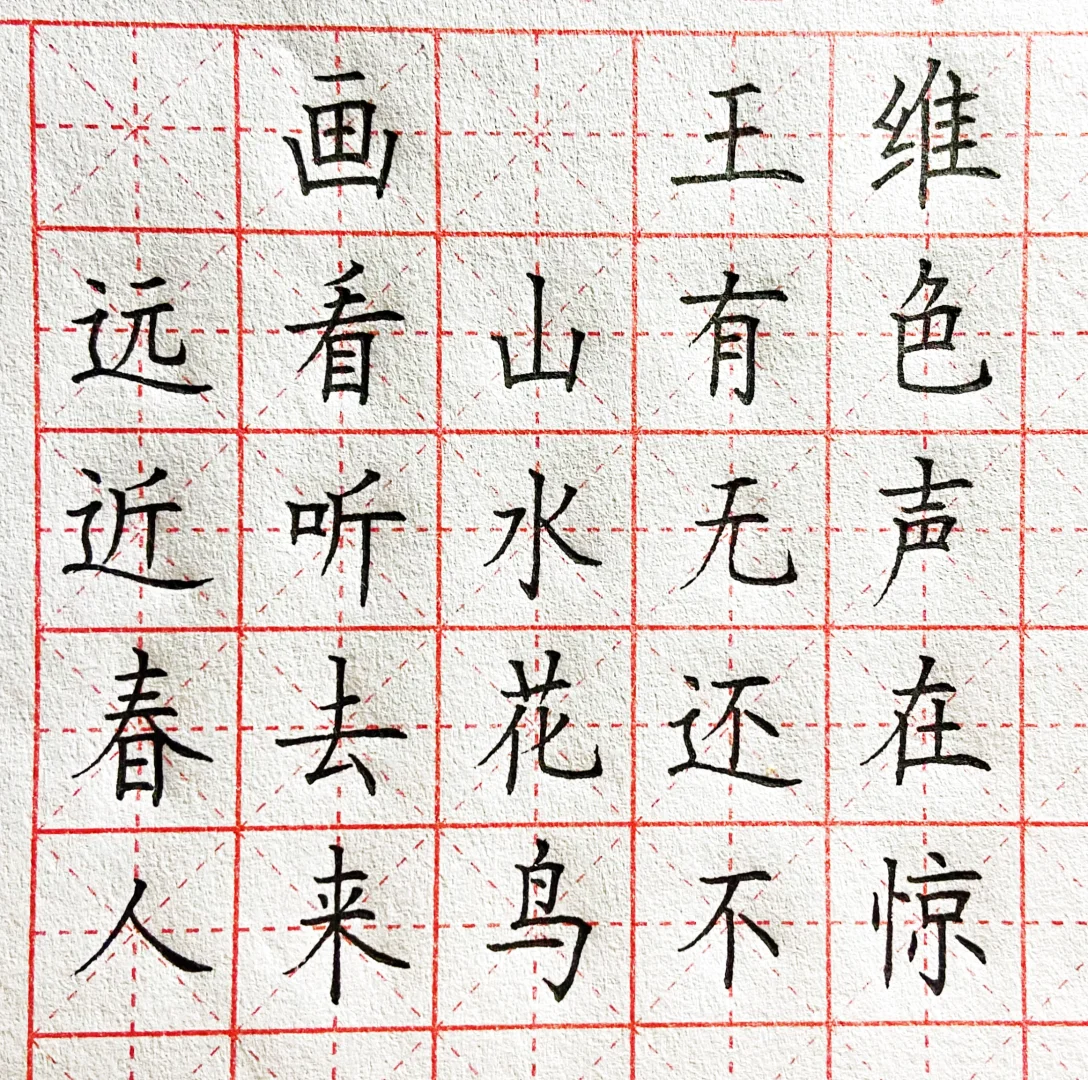 画 王维
远看山有色
近听水无声
春去花还在
人来鸟不惊